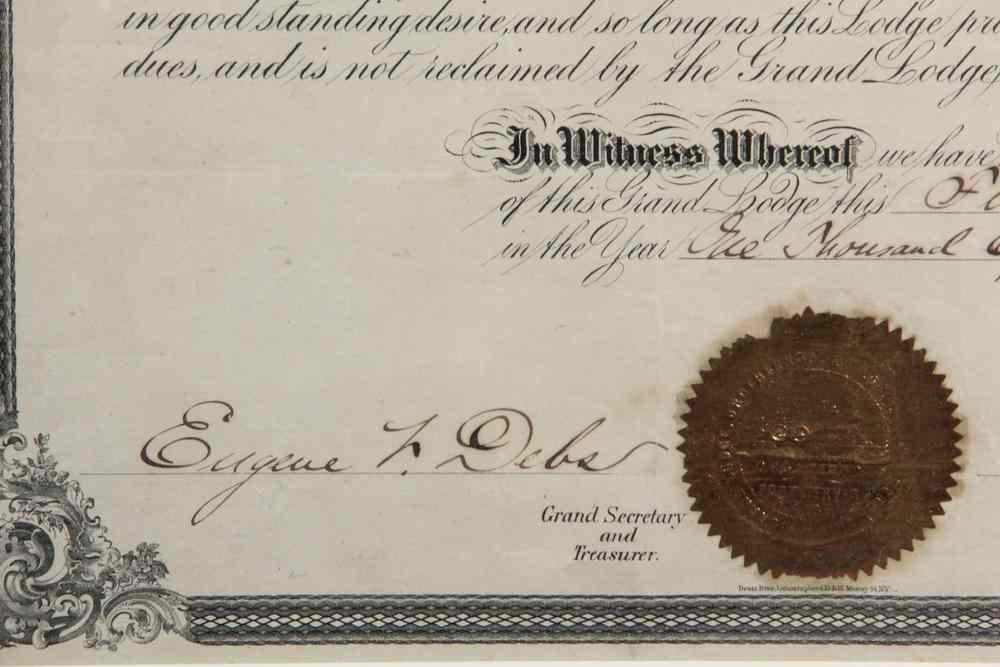 in good standing desire, and so long as this Lodge
dues, and is not reclaimed by the Grand Lodge,
In Witness Whereof we have
of this Grand Lodge this
in the Year One Thousand
Eugene V. Debs
Grand Secretary
and
Treasurer.